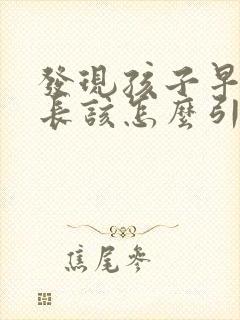 發現孩子早
長該怎麼引
焦尾參